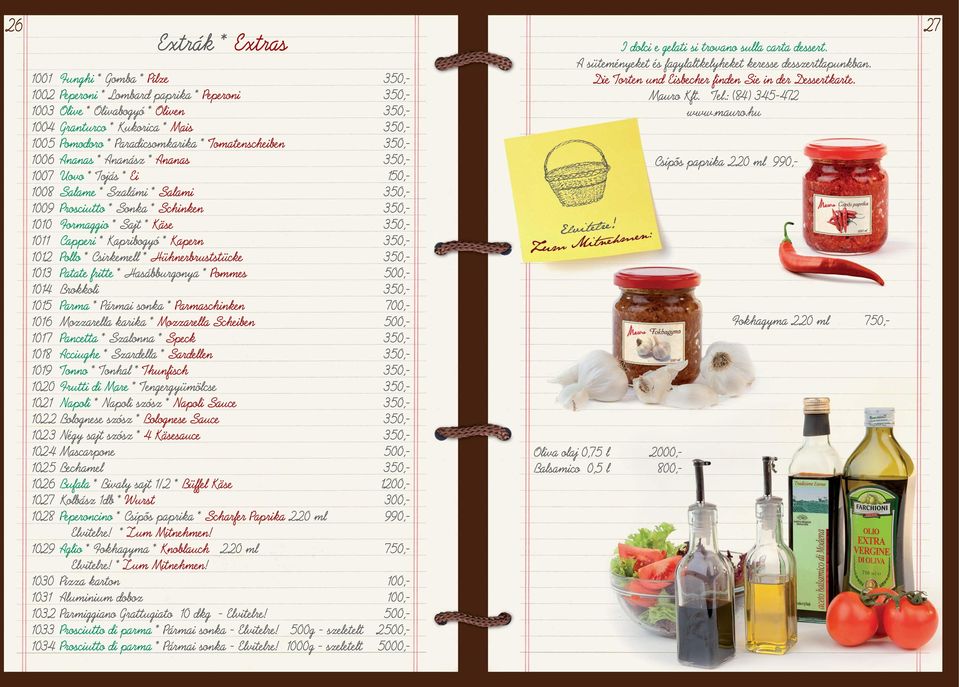 26
Extrák * Extras
1001 Funghi * Gomba * Pilze 350,-
1002 Peperoni * Lombard paprika * Peperoni 350,-
1003 Olive * Olivabogyó * Oliven 350,-
1004 Granturco * Kukorica * Mais 350,-
1005 Pomodoro * Paradicsomkarika * Tomatenscheiben 350,-
1006 Ananas * Ananász * Ananas 350,-
1007 Uovo * Tojás * Ei 150,-
1008 Salame * Szalámi * Salami 350,-
1009 Prosciutto * Sonka * Schinken 350,-
1010 Formaggio * Sajt * Käse 350,-
1011 Capperi * Kapribogyó * Kapern 350,-
1012 Pollo * Csirkemell * Hühnerbruststücke 350,-
1013 Patate fritte * Hasábburgonya * Pommes 500,-
1014 Brokkoli 350,-
1015 Parma * Pármai sonka * Parmaschinken 700,-
1016 Mozzarella karika * Mozzarella Scheiben 500,-
1017 Pancetta * Szalonna * Speck 350,-
1018 Acciughe * Szardella * Sardellen 350,-
1019 Tonno * Tonhal * Thunfisch 350,-
1020 Frutti di Mare * Tengergyümölcse 350,-
1021 Napoli * Napoli szósz * Napoli Sauce 350,-
1022 Bolognese szósz * Bolognese Sauce 350,-
1023 Négy sajt szósz * 4 Käsesauce 350,-
1024 Mascarpone 500,-
1025 Bechamel 350,-
1026 Bufala * Bivaly sajt 1/2 * Büffel Käse 1200,-
1027 Kolbász 1db * Wurst 300,-
1028 Peperoncino * Csípős paprika * Scharfer Paprika 220 ml 990,-
Elvitelre! * Zum Mitnehmen!
1029 Aglio * Fokhagyma * Knoblauch 220 ml 750,-
Elvitelre! * Zum Mitnehmen!
1030 Pizza karton 100,-
1031 Aluminium doboz 100,-
1032 Parmiggiano Grattugiato 10 dkg - Elvitelre! 500,-
1033 Prosciutto di parma * Pármai sonka - Elvitelre! 500g - szeletelt 2500,-
1034 Prosciutto di parma * Pármai sonka - Elvitelre! 1000g - szeletelt 5000,-
27
I dolci e gelati si trovano sulla carta dessert.
A süteményeket és fagylaltkelyheket keresse desszertlapunkban.
Die Torten und Eisbecher finden Sie in der Dessertkarte.
Mauro Kft. Tel.: (84) 345-472
www.mauro.hu
Csípős paprika 220 ml 990,-
Mauro Csípős paprika
Elvitelre!
Zum Mitnehmen!
Fokhagyma 220 ml 750,-
Mauro Fokhagyma
Oliva olaj 0,75 l 2000,-
Balsamico 0,5 l 800,-
aceto balsamico di Modena
FARCHIONI
OLIO
EXTRA
VERGINE
DI OLIVA